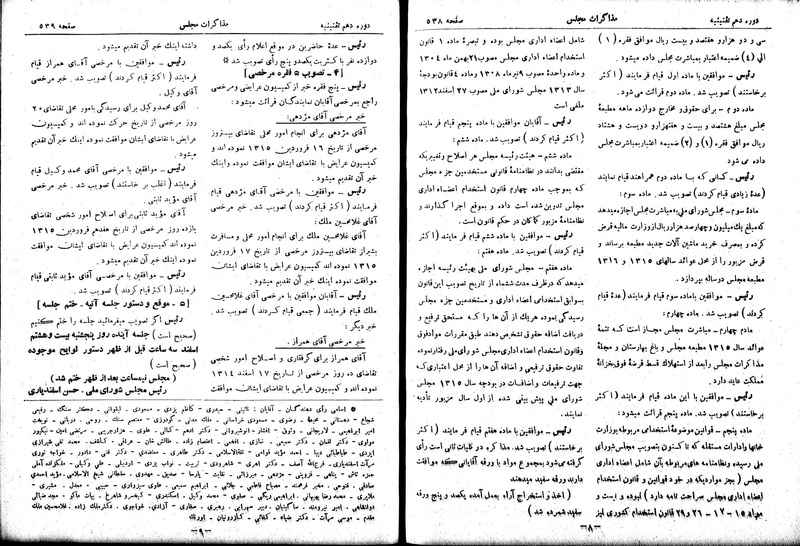 دوره دهم تقنینیه
مذاکرات مجلس
صفحه ۵۳۸
سی و دو هزار و هفتصد و بیست ریال موافق فقره (۱)
الی (٤) ضمیمه اعتبار بمباشرت مجلس داده میشود.
رئیس - موافقین با ماده اول قیام فرمایند (اکثر
برخاستند) تصویب شد. ماده دوم قرائت می‌شود.
ماده دوم - برای حقوق و مخارج دوازده ماهه مطبعه
مجلس مبلغ هشتصد و بیست و هفتهزار و دویست و هشتاد
ریال موافق فقره (۱) و (۲) ضمیمه اعتبار بمباشرت مجلس
داده می شود
رئیس - کسانی که با ماده دوم همراهند قیام نمایند
(عدۀ زیادی قیام کردند) تصویب شد. ماده سوم:
ماده سوم - مجلس شورای ملی بمباشرت مجلس اجازه میدهد
که مبلغ یک میلیون و چهارصد هزار ریال از وزارت مالیه قرض
کرده و بمصرف خرید ماشین آلات جدید مطبعه برساند و
قرض مزبور را از محل عوائد سالهای ۱۳۱۵ و ۱۳۱۶
مطبعه مجلس دو ساله بپردازد.
رئیس - موافقین با ماده سوم قیام فرمایند (عدۀ قیام
کردند) تصویب شد. ماده چهارم:
ماده چهارم - مباشرت مجلس مجاز است که تتمۀ
عوائد سال ۱۳۱۵ مطبعه مجلس و باغ بهارستان و مجله
مذاکرات مجلس را بعد از استهلاک قسط قرضۀ فوق بخزانۀ
مملکتی عاید دارد.
رئیس - موافقین با این ماده قیام فرمایند (اکثر
برخاستند) تصویب شد. ماده پنجم قرائت میشود:
ماده پنجم - قوانین موضوعۀ استخدامی مربوطه بوزارت
خانها و ادارات مستقله که تا کنون بتصویب مجلس شورای
ملی رسیده و نظامنامه های مربوطه بآن شامل اعضاء اداری
مجلس (بجز مواردیکه در خود قوانین و قانون استخدام
اعضاء اداری مجلس صراحت نامه دارد) نبوده و است و
مواد ۱۵ - ۱۷ - ۲۱ و ۲۹ قانون استخدام کشوری نیز
شامل اعضاء اداری مجلس بوده و تبصرۀ ماده ۱ قانون
استخدام اعضاء اداری مجلس مصوب ۲۱ بهمن ماه ۱۳۰٤
و ماده واحدۀ مصوب ۹ تیر ماه ۱۳۰۸ و ماده ٤ قانون بودجۀ
۱۳۱۳ مجلس شورای ملی مصوب ۲۷ اسفند ۱۳۱۲
ملغی است
رئیس - آقایان موافقین با ماده پنجم قیام فرمایند
(اکثر قیام کردند) تصویب شد. ماده ششم:
ماده ششم - هیئت رئیسه مجلس هر اصلاح و تغییریکه
مقتضی بدانند در نظامنامۀ قانونی مستخدمین جزء مجلس
که بموجب ماده چهارم قانون استخدام اعضاء اداری
مجلس تدوین شده است داده و بموقع اجرا گذارند و
نظامنامۀ مزبور کماکان در حکم قانون است.
رئیس - موافقین با ماده ششم قیام فرمایند (اکثر
قیام کردند) تصویب شد. ماده هفتم:
ماده هفتم - مجلس شورای ملی بهیئت رئیسه اجازه
میدهد که در ظرف مدت ششماه از تاریخ تصویب این قانون
بسوابق استخدامی اعضاء اداری و مستخدمین جزء مجلس
رسیدگی نموده هر یک از آن ها را که مستحق ترفیع و
دریافت اضافه حقوق تشخیص دهند طبق مقررات مواد فوق
و قانون استخدام اعضاء اداری مجلس شورای ملی رفتار نموده
تفاوت حقوق ترفیعی و اضافه آن ها را از محل اعتباری که
جهت ترفیعات و اضافات در بودجه سال ۱۳۱۵ مجلس
شورای ملی پیش بینی شده از اول سال مزبور تأدیه
نمایند.
رئیس - موافقین با ماده هفتم قیام فرمایند (اکثر
برخاستند) تصویب شد. مذاکره در کلیات ثانی است رأی
گرفته میشود بمجموع مواد با ورقه آقایانی که موافقت
دارند ورقه سفید میدهند
(اخذ و استخراج آراء بعمل آمده یکصد و پنج ورقه
سفید شمرده شد)
-۸-
دوره دهم تقنینیه
مذاکرات مجلس
صفحه ۵۳۹
رئیس - عدۀ حاضرین در موقع اعلام رأی یکصد و
دوازده نفر با کثریت یکصد و پنج رأی تصویب شد *
[٤ - تصویب ۵ فقره مرخصی]
رئیس - پنج فقره خبر از کمیسیون عرایض و مرخصی
راجع بمرخصی آقایان نمایندگان قرائت میشود:
خبر مرخصی آقای مژدهی:
آقای مژدهی برای انجام امور محلی تقاضای بیست روز
مرخصی از تاریخ ۱۶ فروردین ۱۳۱۵ نموده اند و
کمیسیون عرایض با تقاضای ایشان موافقت نموده و اینک
خبر آن تقدیم میشود.
رئیس - موافقین با مرخصی آقای مژدهی قیام
فرمایند (اکثر قیام کردند) تصویب شد. خبر مرخصی
آقای غلامحسین ملک:
آقای غلامحسین ملک برای انجام امور محلی و مسافرت
بشیراز تقاضای بیست روز مرخصی از تاریخ ۱۷ فروردین
۱۳۱۵ نموده اند کمیسیون عرایض با تقاضای ایشان
موافقت نموده اینک خبر آن تقدیم میشود.
رئیس - موافقین با مرخصی آقای غلامحسین
ملک قیام فرمایند (جمعی قیام کردند) تصویب شد.
خبر دیگر:
خبر مرخصی آقای همراز.
آقای همراز برای گرفتاری و اصلاح امور شخصی
تقاضای ده روز مرخصی از تاریخ ۱۷ اسفند ۱۳۱٤
نموده اند و کمیسیون عرایض با تقاضای ایشان موافقت
داشته اینک خبر آن تقدیم میشود.
رئیس - موافقین با مرخصی آقای همراز قیام
فرمایند (اکثر قیام کردند) تصویب شد. خبر مرخصی
آقای وکیل.
آقای محمد وکیل برای رسیدگی بامور محلی تقاضای ۲۰
روز مرخصی از تاریخ حرکت نموده اند و کمیسیون
عرایض با تقاضای ایشان موافقت نموده اینک خبر آن تقدیم
میشود.
رئیس - موافقین با مرخصی آقای محمد وکیل قیام
فرمایند (اغلب برخاستند) تصویب شد. خبر مرخصی
آقای مؤید ثابتی.
آقای مؤید ثابتی برای اصلاح امور شخصی تقاضای
یازده روز مرخصی از تاریخ هفدهم فروردین ۱۳۱۵
نموده اند کمیسیون عرایض با تقاضای ایشان موافقت
نموده اینک خبر آن تقدیم میشود.
رئیس - موافقین با مرخصی آقای مؤید ثابتی قیام
فرمایند (اکثر قیام کردند) تصویب شد.
[۵ - موقع و دستور جلسه آتیه. ختم جلسه]
رئیس اگر تصویب میفرمائید جلسه را ختم کنیم
(صحیح است) جلسه آینده روز پنجشنبه بیست و هشتم
اسفند سه ساعت قبل از ظهر دستور لوایح موجوده
(صحیح است)
(مجلس نیمساعت بعد از ظهر ختم شد)
رئیس مجلس شورای ملی - حسن اسفندیاری
* اسامی رأی دهندگان - آقایان:
-۹-